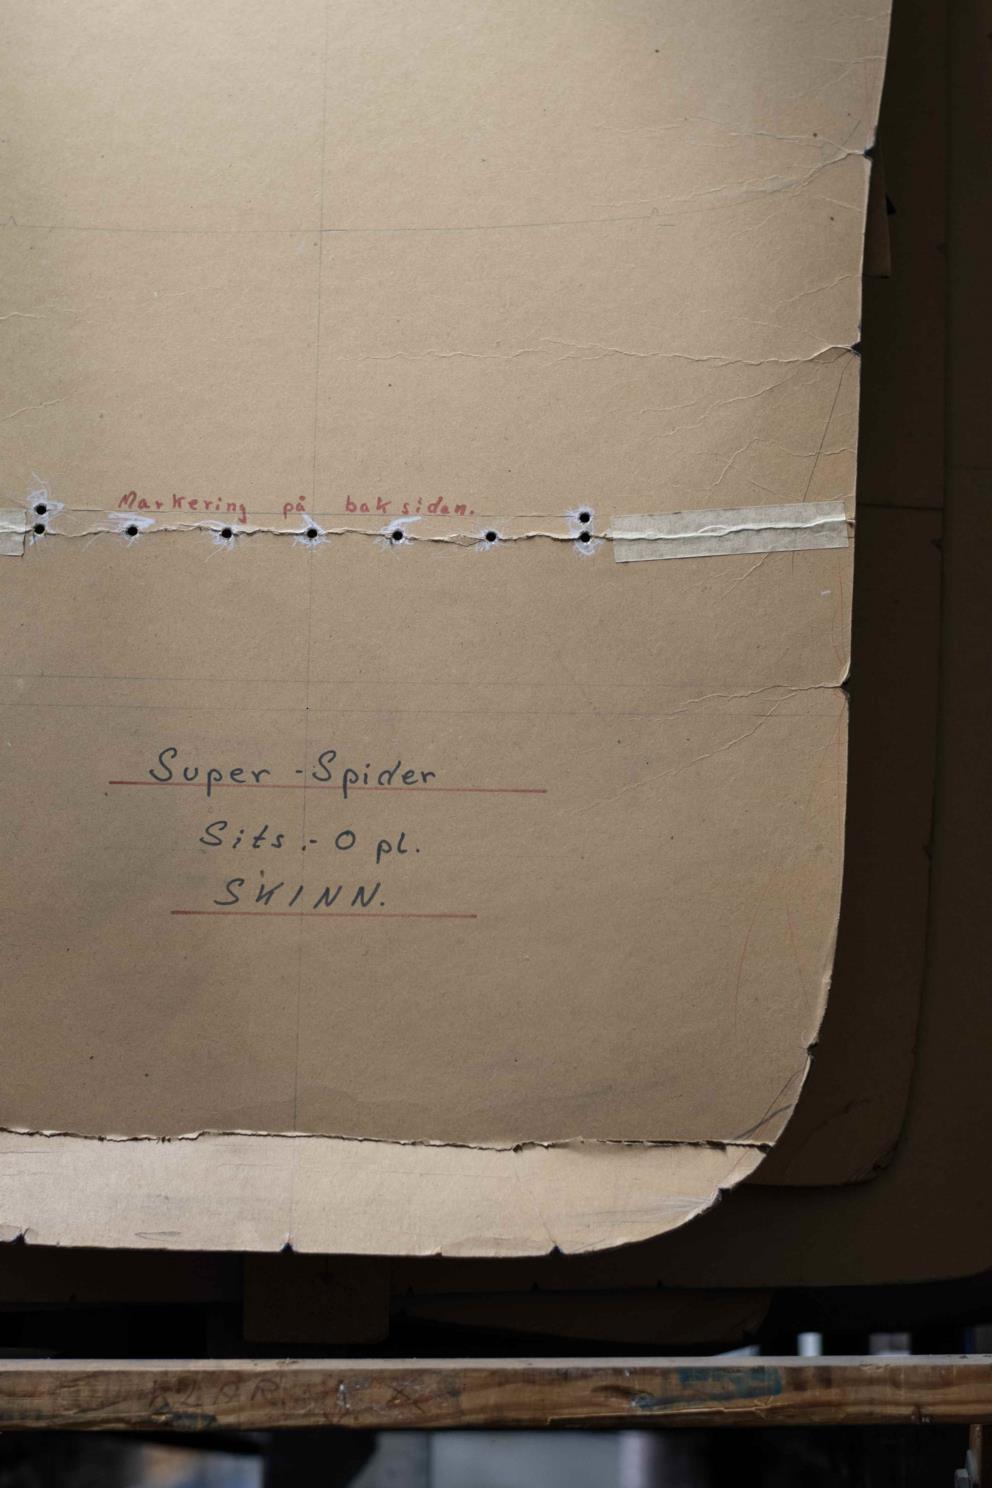 Markering på baksidan.
Super-Spider
Sits.- O pl.
SKINN.